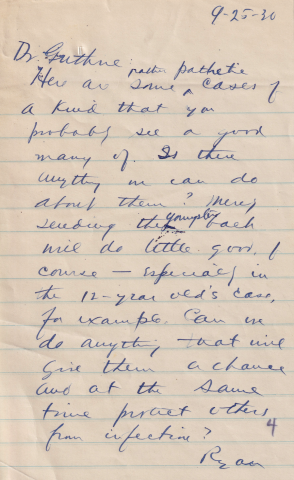 9-25-30
Dr. Guthrie:
Here are some rather pathetic cases of
a kind that you
probably see a good
many of. Is there
anything we can do
about them? Merely
sending the youngster back
will do little good, of
course — especially in
the 12-year old's case,
for example. Can we
do anything that will
give them a chance
and at the same
time protect others
from infection?
4
Ryan